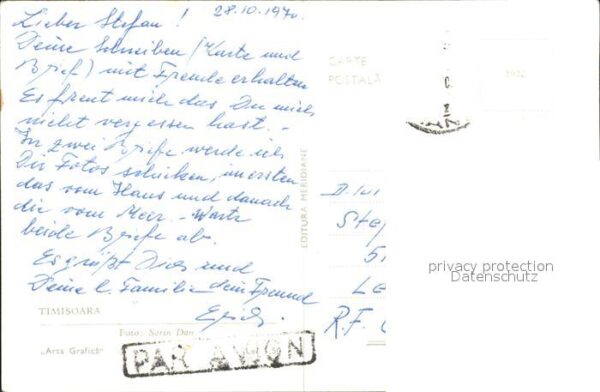 28.10.1970.
Lieber Stefan !
Deine Schreiben (Karte und
Brief) mit Freude erhalten
Es freut mich das Du mich
nicht vergessen hast. -
In zwei Briefe werde ich
Dir Fotos schicken, im ersten
das vom Haus und danach
die vom Meer. - Warte
beide Briefe ab.
Es grüßt Dich und
Deine l. Familie dein Freund
Erich.
TIMIȘOARA
Foto: Sorin Dan
„Arta Grafică"
PAR AVION
EDITURA MERIDIANE
CARTE
POSTALĂ
Ste
Le
R.F.
privacy protection
Datenschutz